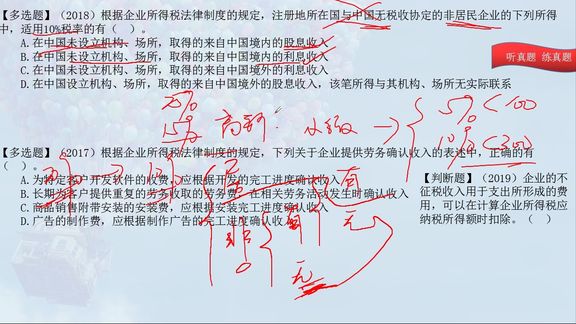 【多选题】（2018）根据企业所得税法律制度的规定，注册地所在国与中国无税收协定的非居民企业的下列所得
中，适用10%税率的有（ ）。
A.在中国未设立机构、场所，取得的来自中国境内的股息收入
B.在中国未设立机构、场所，取得的来自中国境内的利息收入
C.在中国未设立机构、场所，取得的来自中国境外的利息收入
D.在中国设立机构、场所，取得的来自中国境外的股息收入，该笔所得与其机构、场所无实际联系
听真题 练真题
15%
高新
小微
5% <100
10% <300
【多选题】（2017）根据企业所得税法律制度的规定，下列关于企业提供劳务确认收入的表述中，正确的有
（ ）。
A.为特定客户开发软件的收费，应根据开发的完工进度确认收入
B.长期为客户提供重复的劳务收取的劳务费，在相关劳务活动发生时确认收入
C.商品销售附带安装的安装费，应根据安装完工进度确认收入
D.广告的制作费，应根据制作广告的完工进度确认收入
居
非
有
无
有
无
【判断题】（2019）企业的不
征税收入用于支出所形成的费
用，可以在计算企业所得税应
纳税所得额时扣除。（ ）